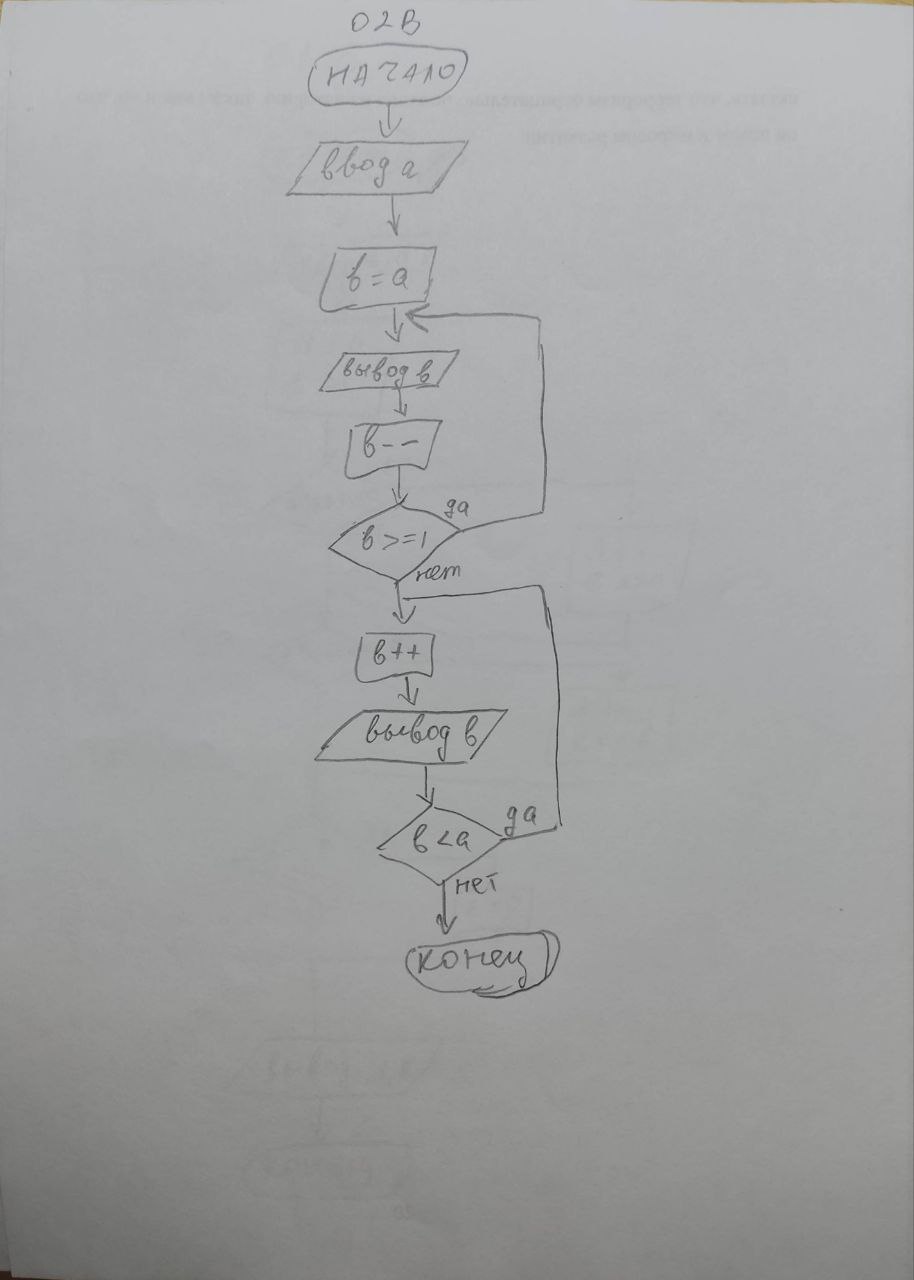 02В
НАЧАЛО
ввод a
в = a
вывод в
в--
да
в >=1
нет
в++
вывод в
да
в < a
нет
конец